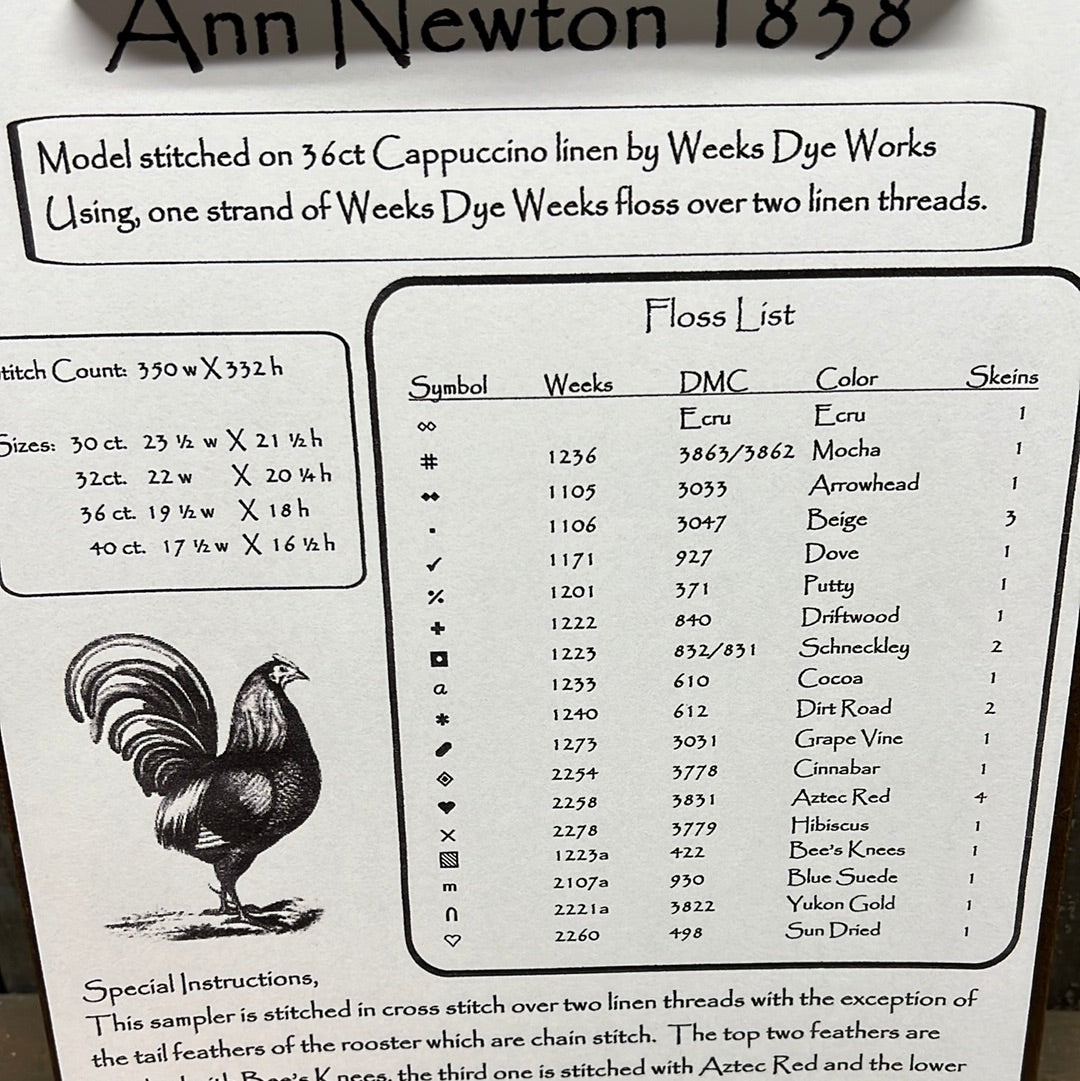 Ann Newton 1838
Model stitched on 36ct Cappuccino linen by Weeks Dye Works
Using, one strand of Weeks Dye Weeks floss over two linen threads.
titch Count: 350 w X 332 h
Sizes: 30 ct. 23 ½ w X 21 ½ h
32ct. 22 w X 20 ¼ h
36 ct. 19 ½ w X 18 h
40 ct. 17 ½ w X 16 ½ h
Floss List
Symbol Weeks DMC Color Skeins
Ecru Ecru 1
# 1236 3863/3862 Mocha 1
1105 3033 Arrowhead 1
1106 3047 Beige 3
✓ 1171 927 Dove 1
٪ 1201 371 Putty 1
✚ 1222 840 Driftwood 1
1223 832/831 Schneckley 2
a 1233 610 Cocoa 1
* 1240 612 Dirt Road 2
1273 3031 Grape Vine 1
2254 3778 Cinnabar 1
♥ 2258 3831 Aztec Red 4
X 2278 3779 Hibiscus 1
1223a 422 Bee's Knees 1
m 2107a 930 Blue Suede 1
∩ 2221a 3822 Yukon Gold 1
♡ 2260 498 Sun Dried 1
Special Instructions,
This sampler is stitched in cross stitch over two linen threads with the exception of
the tail feathers of the rooster which are chain stitch. The top two feathers are
Bee's Knees, the third one is stitched with Aztec Red and the lower